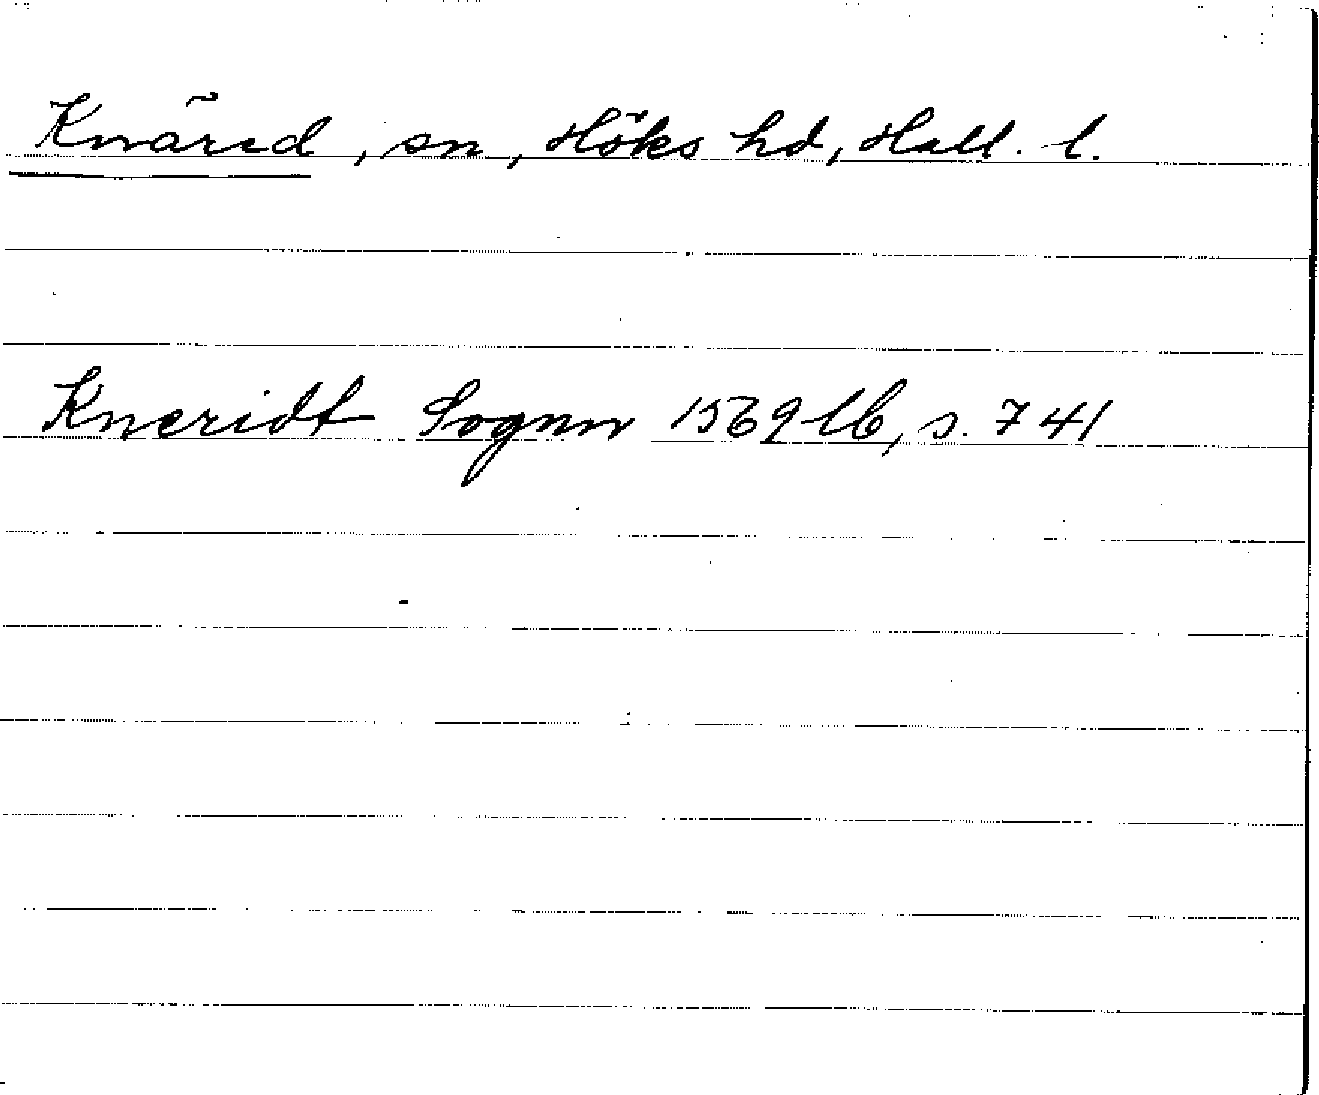 Knäred, sn, Höks hd, Hall. l.
Kneridt Sognn 1569 lb, s. 741